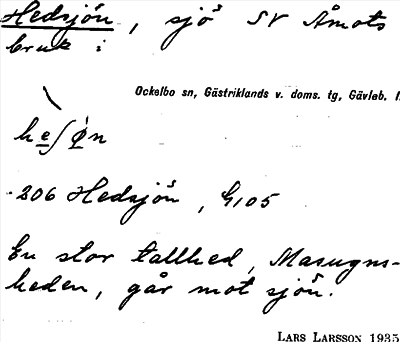 Hedsjön, sjö SV Åmots
bruk i
Ockelbo sn, Gästriklands v. doms. tg, Gävleb. l.
he∫ø̀n
206 Hedsjön, G105
En stor tallhed, Masugns-
heden, går mot sjön.
LARS LARSSON 1935